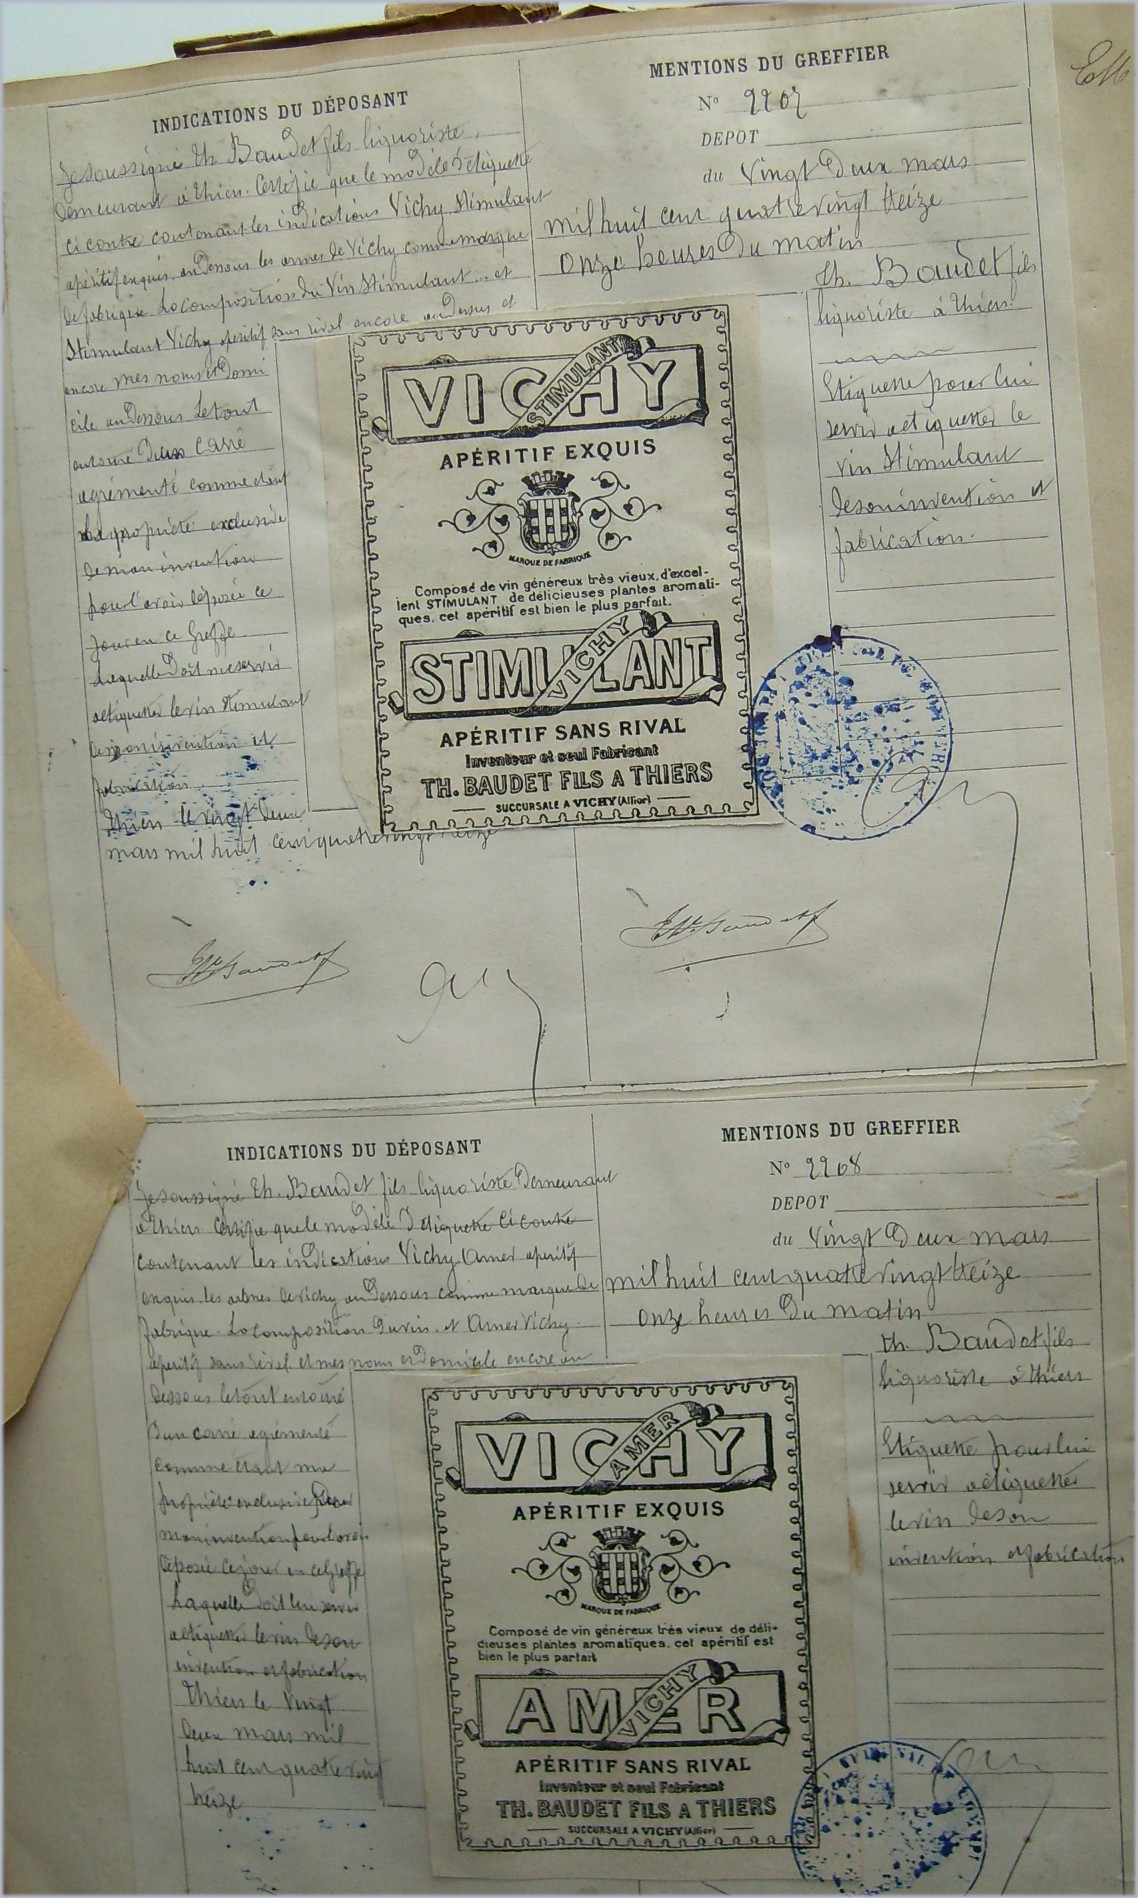 INDICATIONS DU DÉPOSANT
Je soussigné Th. Baudet fils liquoriste
demeurant à Thiers. Certifie que le modèle d'étiquette
ci contre contenant les indications Vichy Stimulant
apéritif exquis, au dessous les armes de Vichy comme marque
de fabrique. La composition du vin Stimulant et
Stimulant Vichy apéritif sans rival encore au dessus et
encore mes noms et Domi
cile au dessous le tout
entouré d'un Carré
agrémenté comme étant
la propriété exclusive
de mon invention
pour l'avoir déposée ce
jour en ce Greffe
Laquelle doit me servir
à étiquetter le vin Stimulant
de mon invention et
fabrication
Thiers le vingt deux
mars mil huit cent quatre vingt treize
Th. Baudet
MENTIONS DU GREFFIER
N° 2207
DEPOT
du Vingt Deux mars
mil huit cent quatre vingt treize
onze heures du matin
Th. Baudet fils
liquoriste à Thiers
Etiquette pour lui
servir à étiquetter le
vin Stimulant
de son invention et
fabrication.
Th. Baudet
VICHY
STIMULANT
APÉRITIF EXQUIS
MARQUE DE FABRIQUE
Composé de vin généreux très vieux, d'excel-
lent STIMULANT de délicieuses plantes aromati-
ques, cet apéritif est bien le plus parfait.
STIMULANT
VICHY
APÉRITIF SANS RIVAL
Inventeur et seul Fabricant
TH. BAUDET FILS A THIERS
SUCCURSALE A VICHY (Allier)
INDICATIONS DU DÉPOSANT
Je soussigné Th. Baudet fils liquoriste Demeurant
à Thiers certifie que le modèle d'étiquette ci contre
contenant les indications Vichy Amer apéritif
exquis les armes de Vichy au dessous comme marque de
fabrique. La composition du vin et Amer Vichy
apéritif sans rival et mes noms et Domicile encore au
dessous le tout entouré
D'un carré agrémenté
comme étant ma
propriété exclusive pour
mon invention pour l'avoir
déposée ce jour en ce Greffe
Laquelle doit lui servir
à étiquetter le vin de son
invention et fabrication
Thiers le Vingt
deux mars mil
huit cent quatre vingt
treize
MENTIONS DU GREFFIER
N° 2208
DEPOT
du Vingt Deux mars
mil huit cent quatre vingt treize
onze heures du matin
Th. Baudet fils
liquoriste à Thiers
Etiquette pour lui
servir à étiquetter
le vin de son
invention et fabrication
VICHY
AMER
APÉRITIF EXQUIS
MARQUE DE FABRIQUE
Composé de vin généreux très vieux de déli-
cieuses plantes aromatiques, cet apéritif est
bien le plus parfait
AMER
VICHY
APÉRITIF SANS RIVAL
Inventeur et seul Fabricant
TH. BAUDET FILS A THIERS
SUCCURSALE A VICHY (Allier)